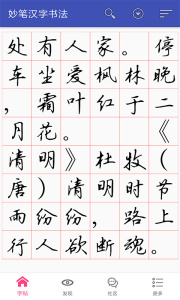 妙笔汉字书法
处有人家。停
车坐爱枫林晚
，霜叶红于二
月花。《
清明》杜牧（
唐）清明时节
雨纷纷，路上
行人欲断魂。
字帖 发现 社区 更多